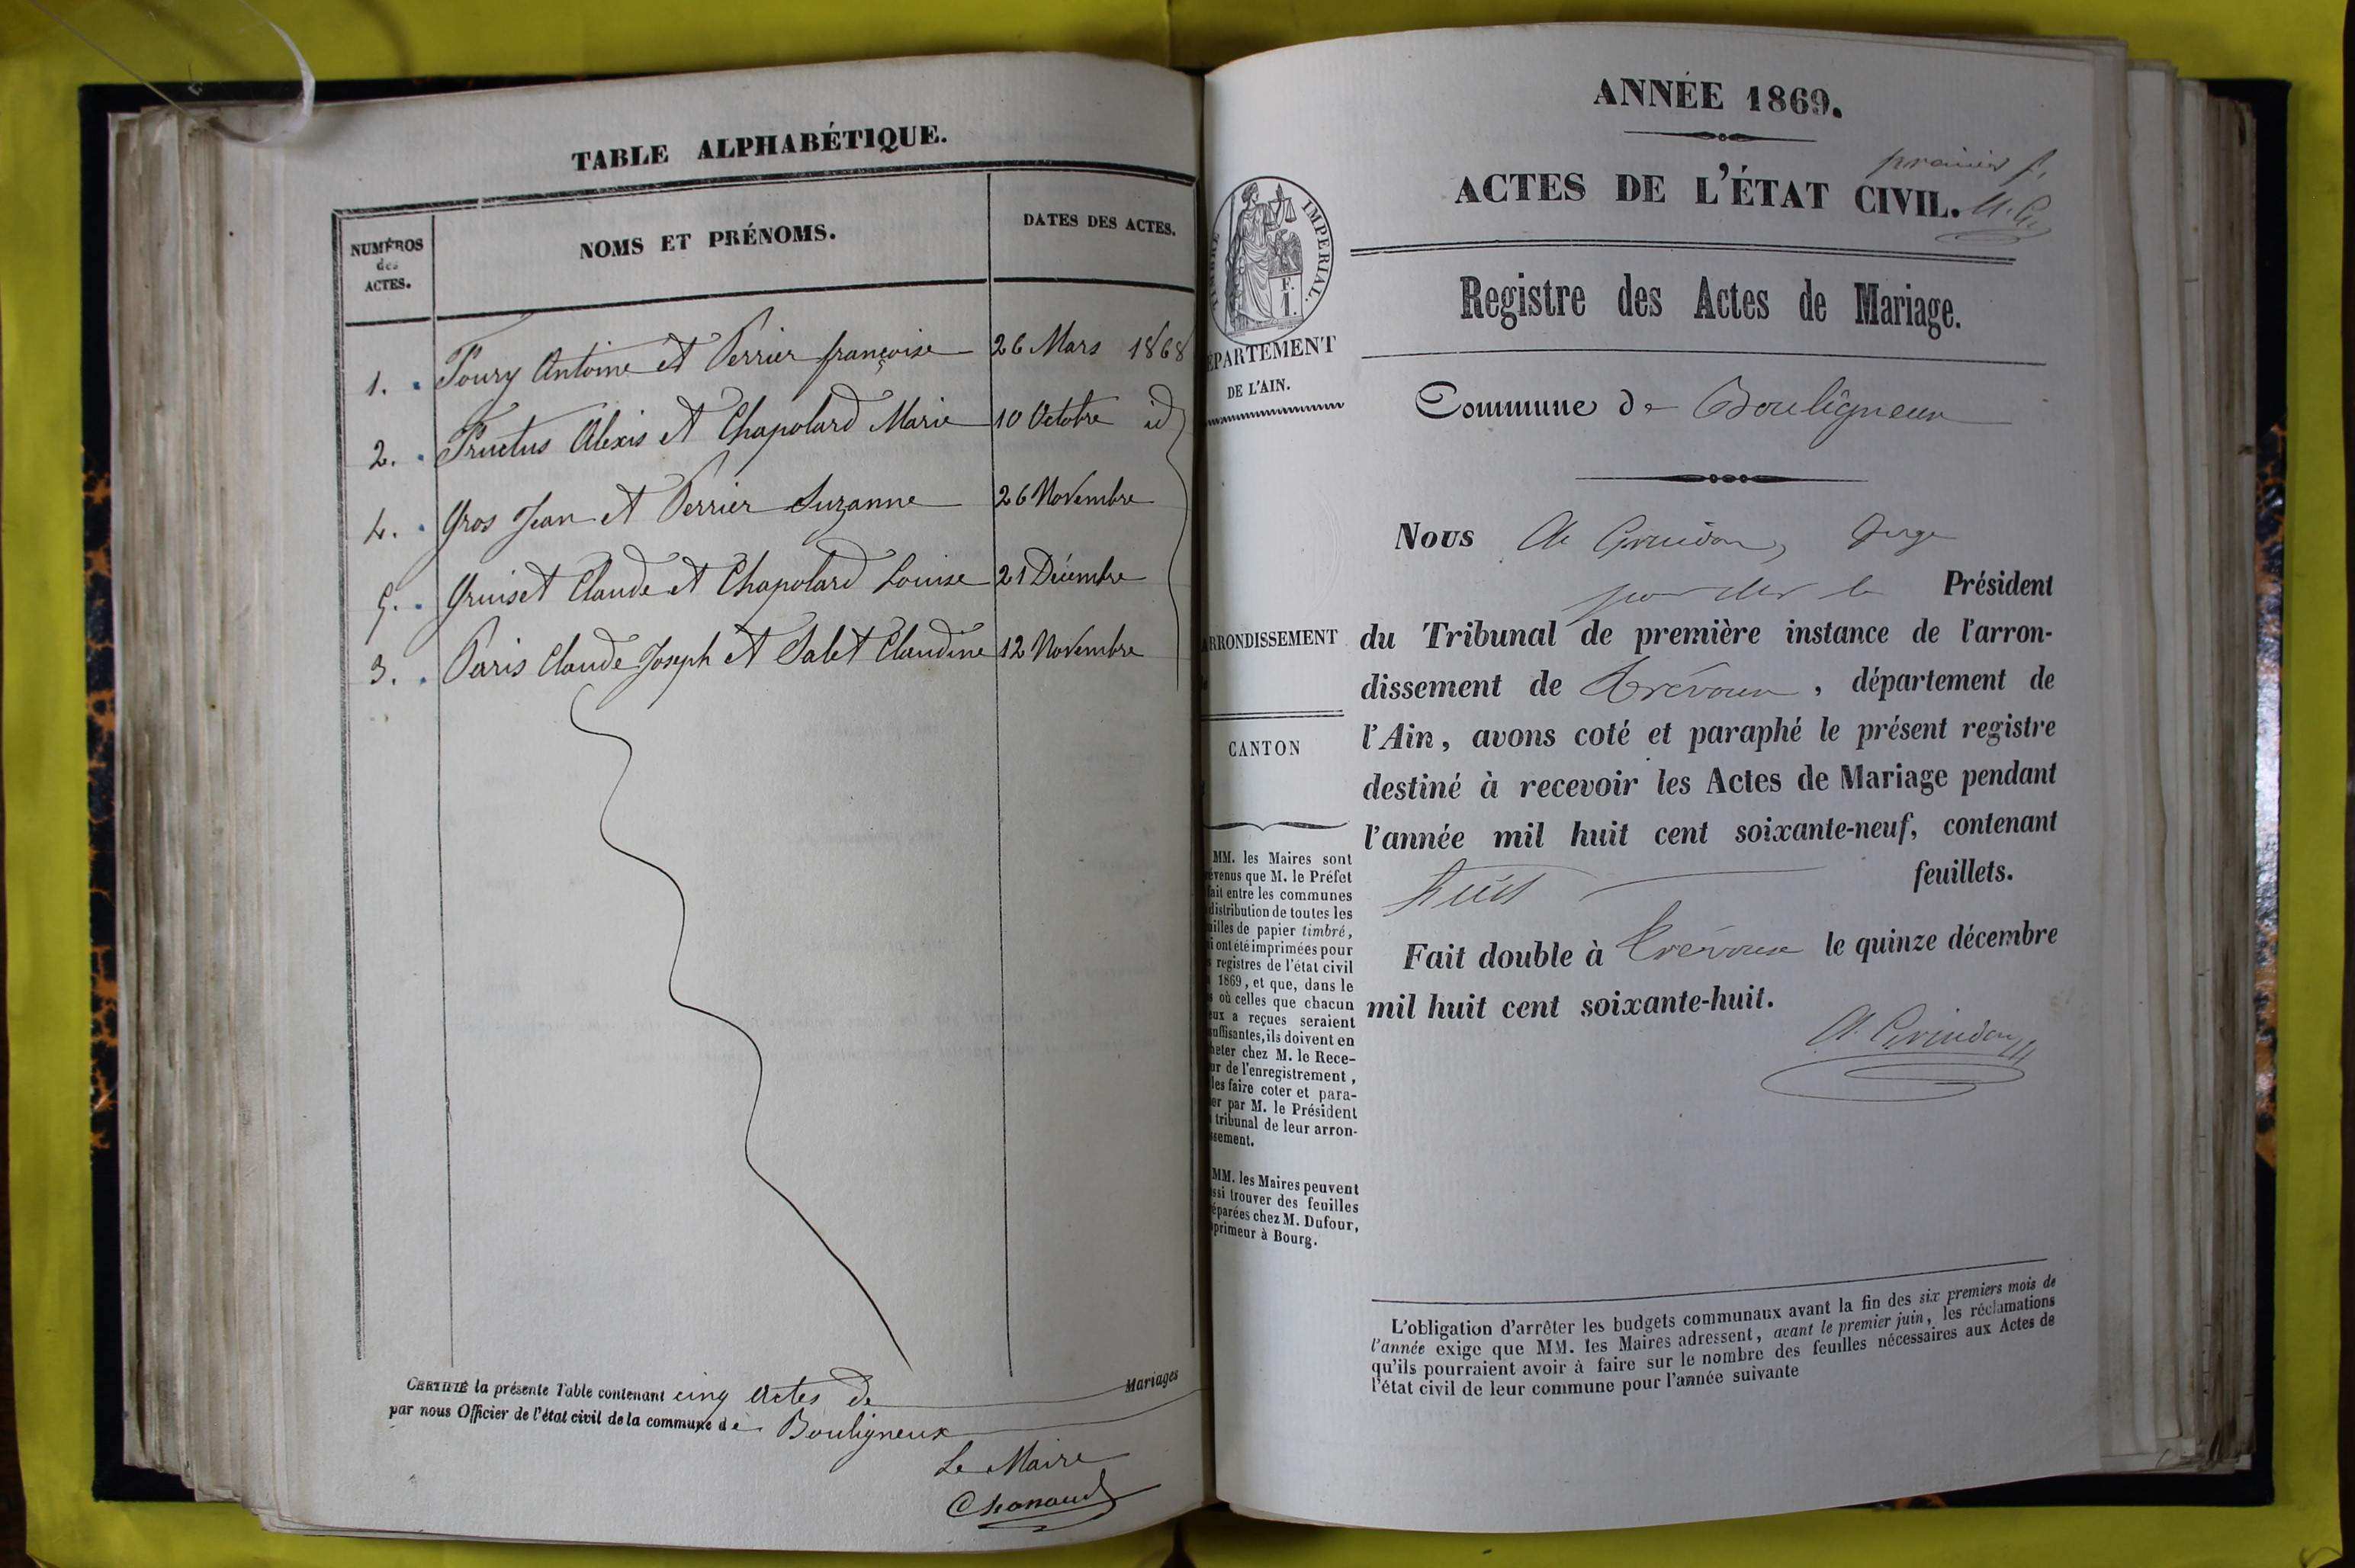 TABLE ALPHABÉTIQUE.
NUMÉROS
des
ACTES.
NOMS ET PRÉNOMS.
DATES DES ACTES.
1. Foury Antoine et Perrier françoise 26 Mars 1868
2. Fructus Alexis et Chapolard Marie 10 Octobre id
4. Gros Jean et Perrier Suzanne 26 Novembre
5. Gruiset Claude et Chapolard Louise 21 Décembre
3. Paris Claude Joseph et Salet Claudine 12 Novembre
CERTIFIÉ la présente Table contenant cinq Actes de Mariages
par nous Officier de l'état civil de la commune de Bouligneux
Le Maire
ANNÉE 1869.
premier f.
ACTES DE L'ÉTAT CIVIL.
TIMBRE IMPERIAL.
F.
1.
Registre des Actes de Mariage.
ÉPARTEMENT
DE L'AIN.
Commune de Bouligneux
Nous A Grindon, Juge
pour le Président
ARRONDISSEMENT
du Tribunal de première instance de l'arron-
dissement de Trévoux, département de
CANTON
l'Ain, avons coté et paraphé le présent registre
destiné à recevoir les Actes de Mariage pendant
l'année mil huit cent soixante-neuf, contenant
huit feuillets.
Fait double à Trévoux le quinze décembre
mil huit cent soixante-huit.
A. Grindon
MM. les Maires sont
évenus que M. le Préfet
fait entre les communes
distribution de toutes les
uilles de papier timbré,
i ont été imprimées pour
s registres de l'état civil
1869, et que, dans le
s où celles que chacun
eux a reçues seraient
uffisantes, ils doivent en
heter chez M. le Rece-
ur de l'enregistrement,
les faire coter et para-
er par M. le Président
tribunal de leur arron-
ssement.
MM. les Maires peuvent
ssi trouver des feuilles
éparées chez M. Dufour,
primeur à Bourg.
L'obligation d'arrêter les budgets communaux avant la fin des six premiers mois de
l'année exige que MM. les Maires adressent, avant le premier juin, les réclamations
qu'ils pourraient avoir à faire sur le nombre des feuilles nécessaires aux Actes de
l'état civil de leur commune pour l'année suivante